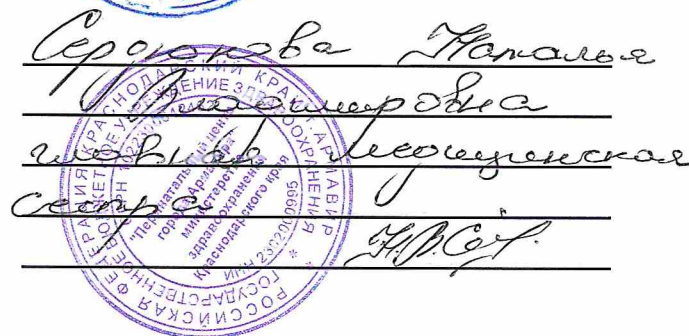 Сердюкова Наталья
Владимировна
главная медицинская
сестра
Н.В.Сер
РОССИЙСКАЯ ФЕДЕРАЦИЯ * КРАСНОДАРСКИЙ КРАЙ Г. АРМАВИР *
ГОСУДАРСТВЕННОЕ БЮДЖЕТНОЕ УЧРЕЖДЕНИЕ ЗДРАВООХРАНЕНИЯ
"Перинатальный центр
города Армавира"
министерства
здравоохранения
Краснодарского края
ИНН 2302000995